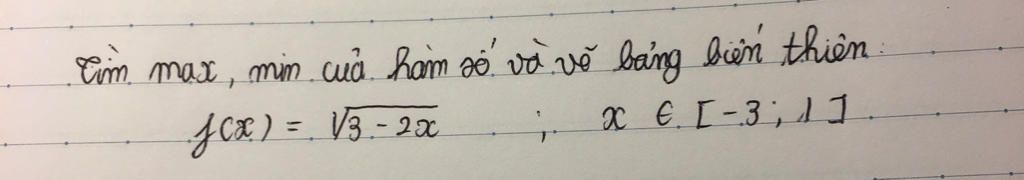 Tìm max, min của hàm số và vẽ bảng biến thiên:
f(x) = √3 - 2x ; x ∈ [-3; 1]